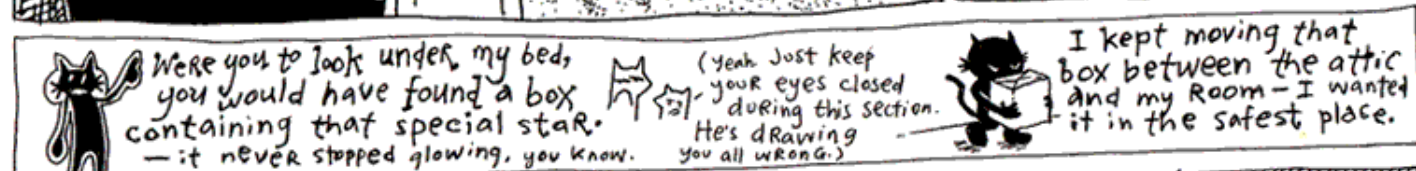 Were you to look under my bed,
you would have found a box
containing that special star.
— it never stopped glowing, you know.
(Yeah Just keep
your eyes closed
during this section.
He's drawing
you all wrong.)
I kept moving that
box between the attic
and my room – I wanted
it in the safest place.